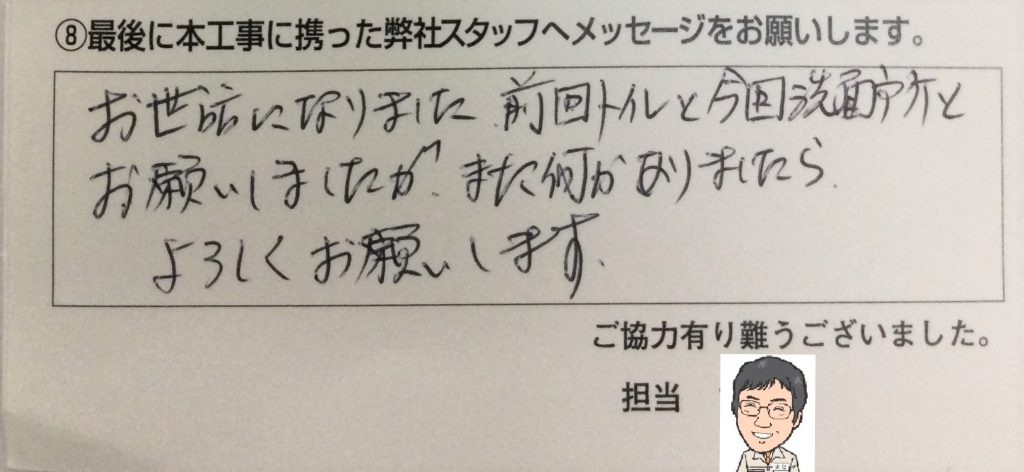 ⑧最後に本工事に携った弊社スタッフへメッセージをお願いします。
お世話になりました.前回トイレと今回洗面所と
お願いしましたが、また何かありましたら.
よろしくお願いします.
ご協力有り難うございました。
担当